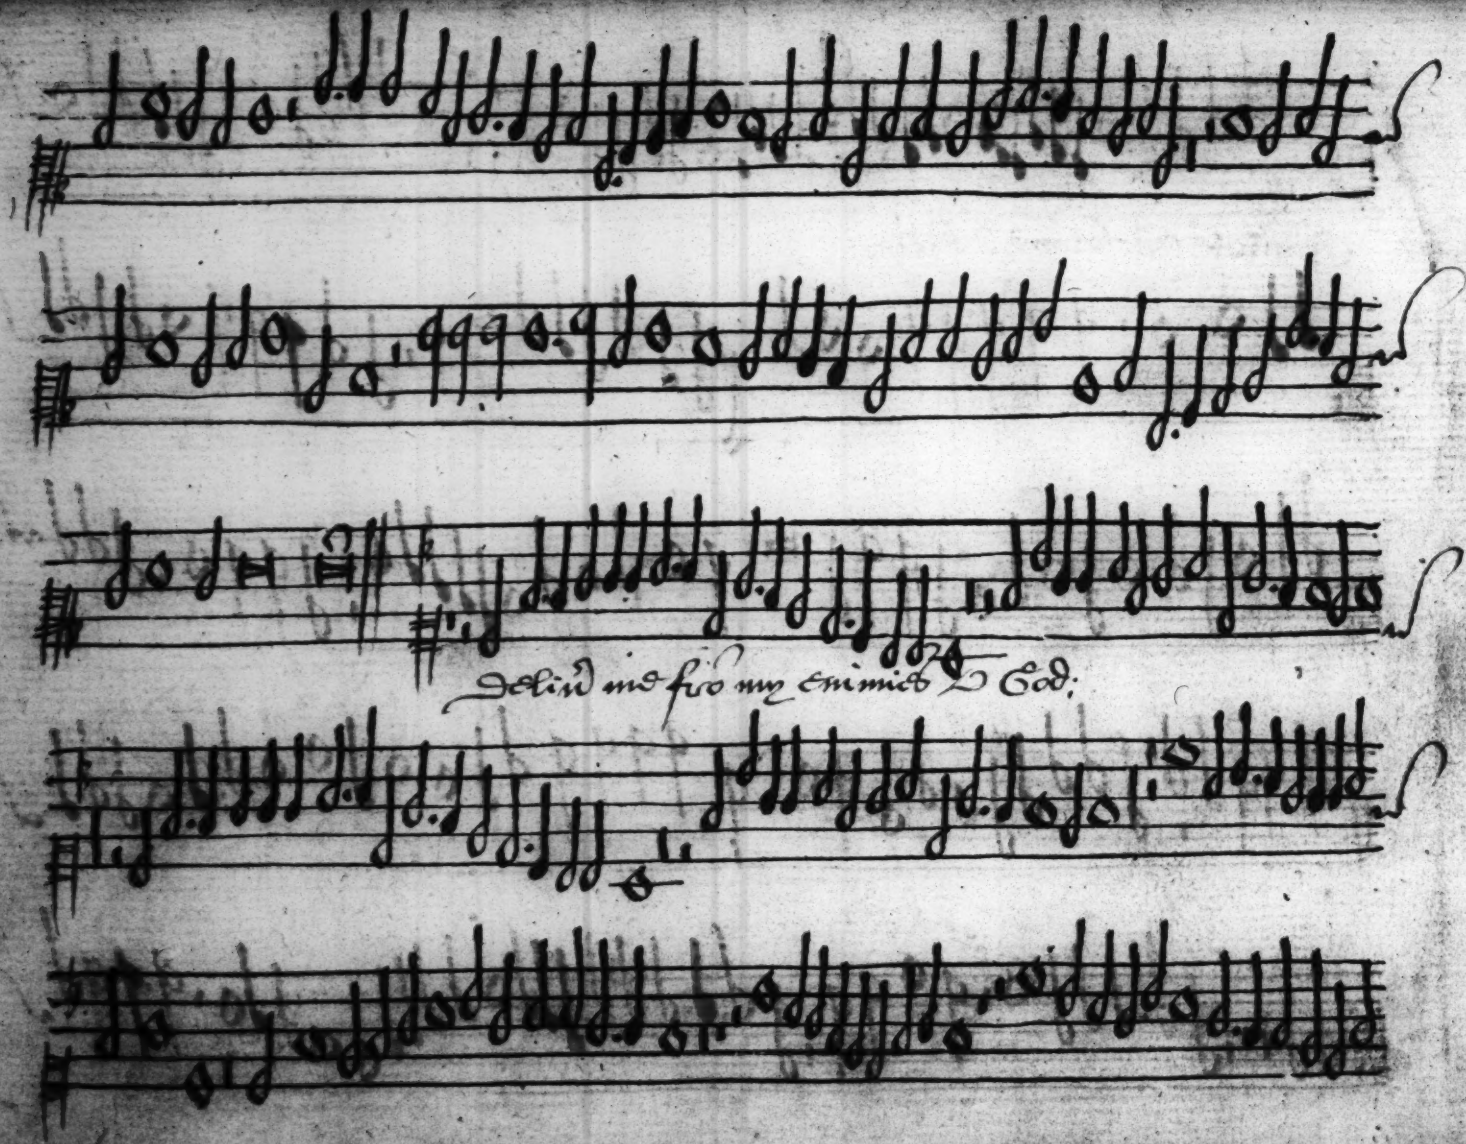 Deliũ me frõ my enimies O God: